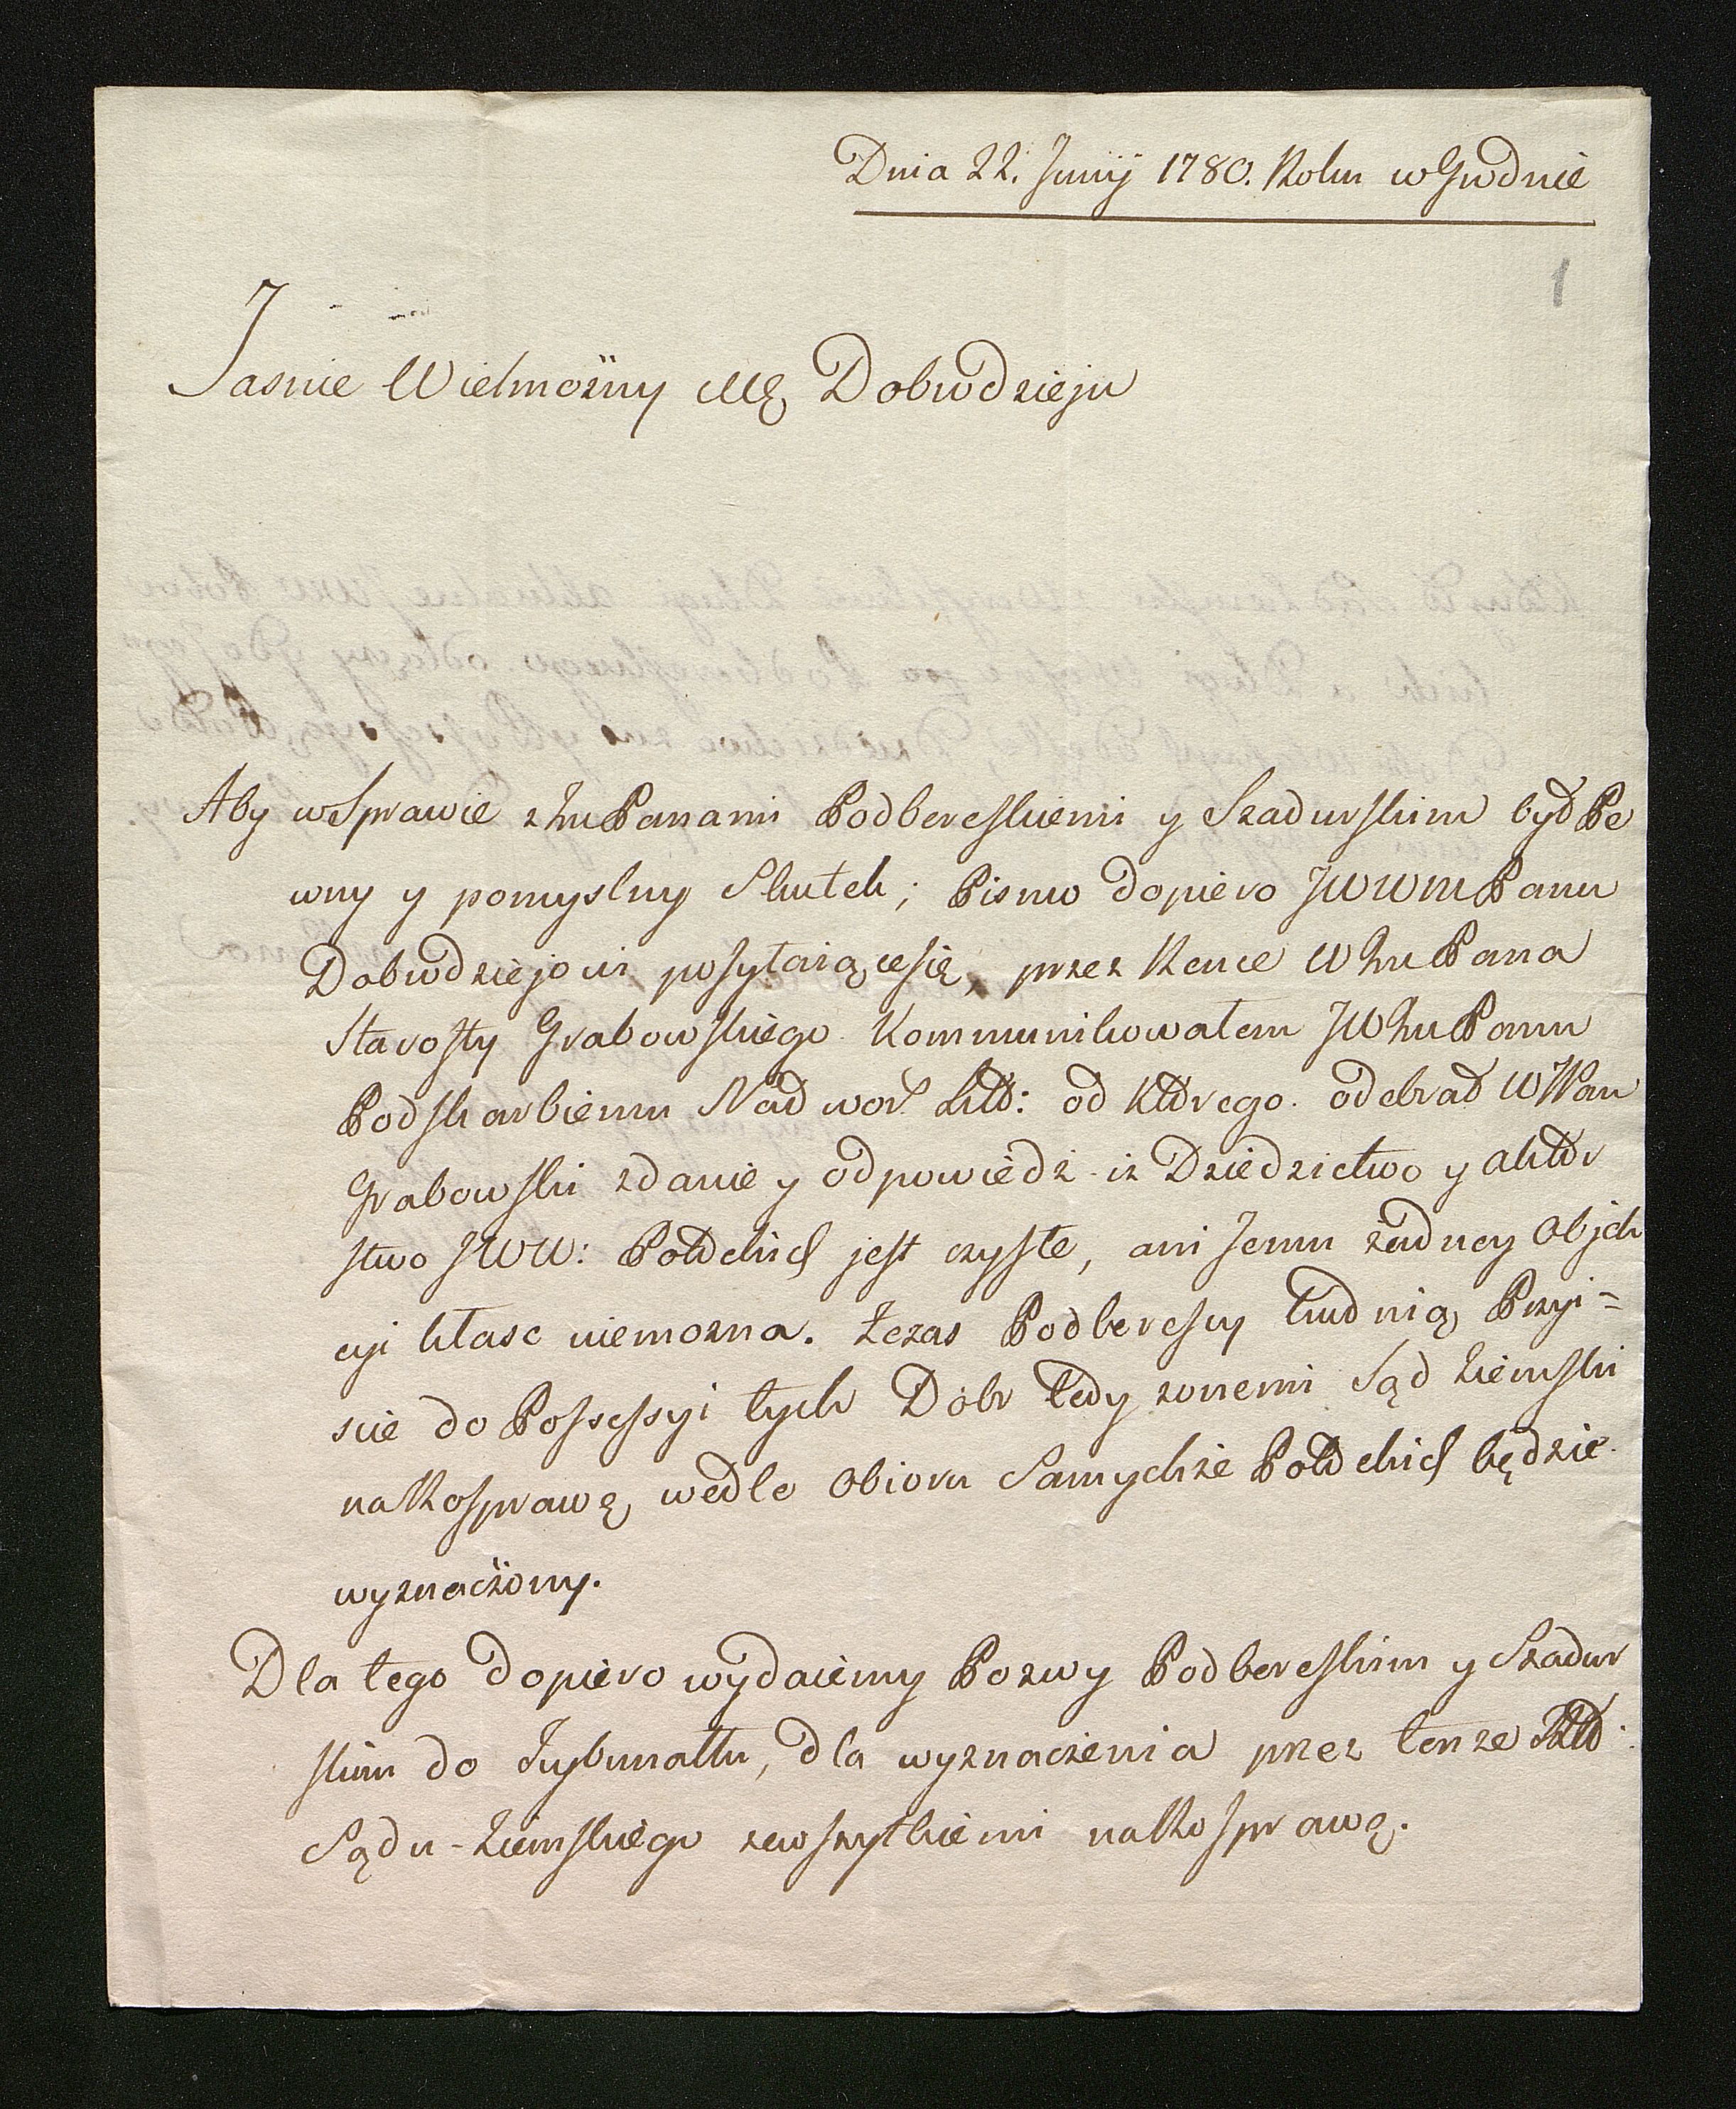 Dnia 22. Junÿ 1780. Roku w Grodnie
1
Jasnie Wielmożny Mę Dobrodzieju
Aby w Sprawie z Imć Panami Podbereskiemi y Szadurskim był Pe
wny y pomyslny Skutek; Pismo dopiero JWWMPanu
Dobrodziejowi posyłaiące się, przez Rence WImćPana
Starosty Grabowskiego kommunikowałem JWImćPanu
Podskarbiemu Nadwor. Litt: od którego odebrał WJPan
Grabowski zdanie y odpowiedź iż Dziedzictwo y aktor
stwo JWW: Potockich jest czyste, ani Jemu żadney Objek
cyi kłasc niemozna. Zezas Podberescy trudnią Przyi=
scie do Possessyi tych Dóbr tedy zonemi Sąd Ziemski
na Rosprawę wedle Obioru Samychże Potockich będzie
wyznaczony.
Dla tego dopiero wydaiemy Pozwy Podbereskim y Szadur
skim do Trybunałłu, dla wyznaczenia przez tenze
Sądu-Ziemskiego zewszytkiemi na Rosprawę.